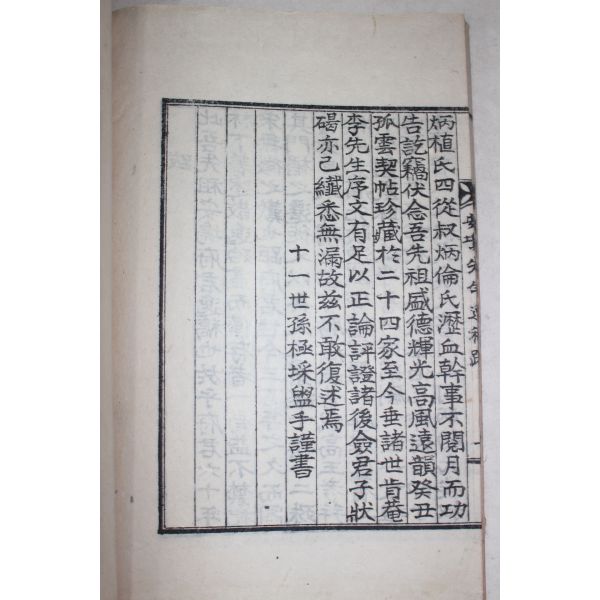 炳植氏四從叔炳倫氏瀝血幹事不閱月而功
告訖竊伏念吾先祖盛德輝光高風遠韻癸丑
孤雲契帖珍藏於二十四家至今垂諸世肯菴
李先生序文有足以正論評證諸後僉君子狀
碣亦已纖悉無漏故玆不敢復述焉
十一世孫極埰盥手謹書